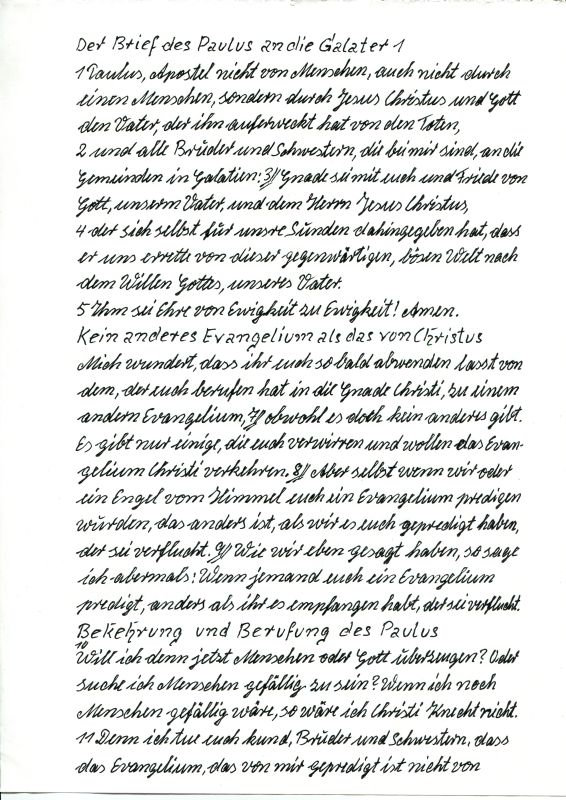 Der Brief des Paulus an die Galater 1
1 Paulus, Apostel nicht von Menschen, auch nicht durch
einen Menschen, sondern durch Jesus Christus und Gott
den Vater, der ihn auferweckt hat von den Toten,
2 und alle Brüder und Schwestern, die bei mir sind, an die
Gemeinden in Galatien: 3// Gnade sei mit euch und Friede von
Gott, unserm Vater, und dem Herrn Jesus Christus,
4 der sich selbst für unsre Sünden dahingegeben hat, dass
er uns errette von dieser gegenwärtigen, bösen Welt nach
dem Willen Gottes, unseres Vater.
5 Ihm sei Ehre von Ewigkeit zu Ewigkeit! Amen.
Kein anderes Evangelium als das von Christus
Mich wundert, dass ihr euch so bald abwenden lasst von
dem, der euch berufen hat in die Gnade Christi, zu einem
andern Evangelium, 7// obwohl es doch kein anderes gibt.
Es gibt nur einige, die euch verwirren und wollen das Evan-
gelium Christi verkehren. 8// Aber selbst wenn wir oder
ein Engel vom Himmel euch ein Evangelium predigen
würden, das anders ist, als wir es euch gepredigt haben,
der sei verflucht. 9// Wie wir eben gesagt haben, so sage
ich abermals: Wenn jemand euch ein Evangelium
predigt, anders als ihr es empfangen habt, der sei verflucht.
Bekehrung und Berufung des Paulus
10 Will ich denn jetzt Menschen oder Gott überzeugen? Oder
suche ich Menschen gefällig zu sein? Wenn ich noch
Menschen gefällig wäre, so wäre ich Christi Knecht nicht.
11 Denn ich tue euch kund, Brüder und Schwestern, dass
das Evangelium, das von mir gepredigt ist nicht von